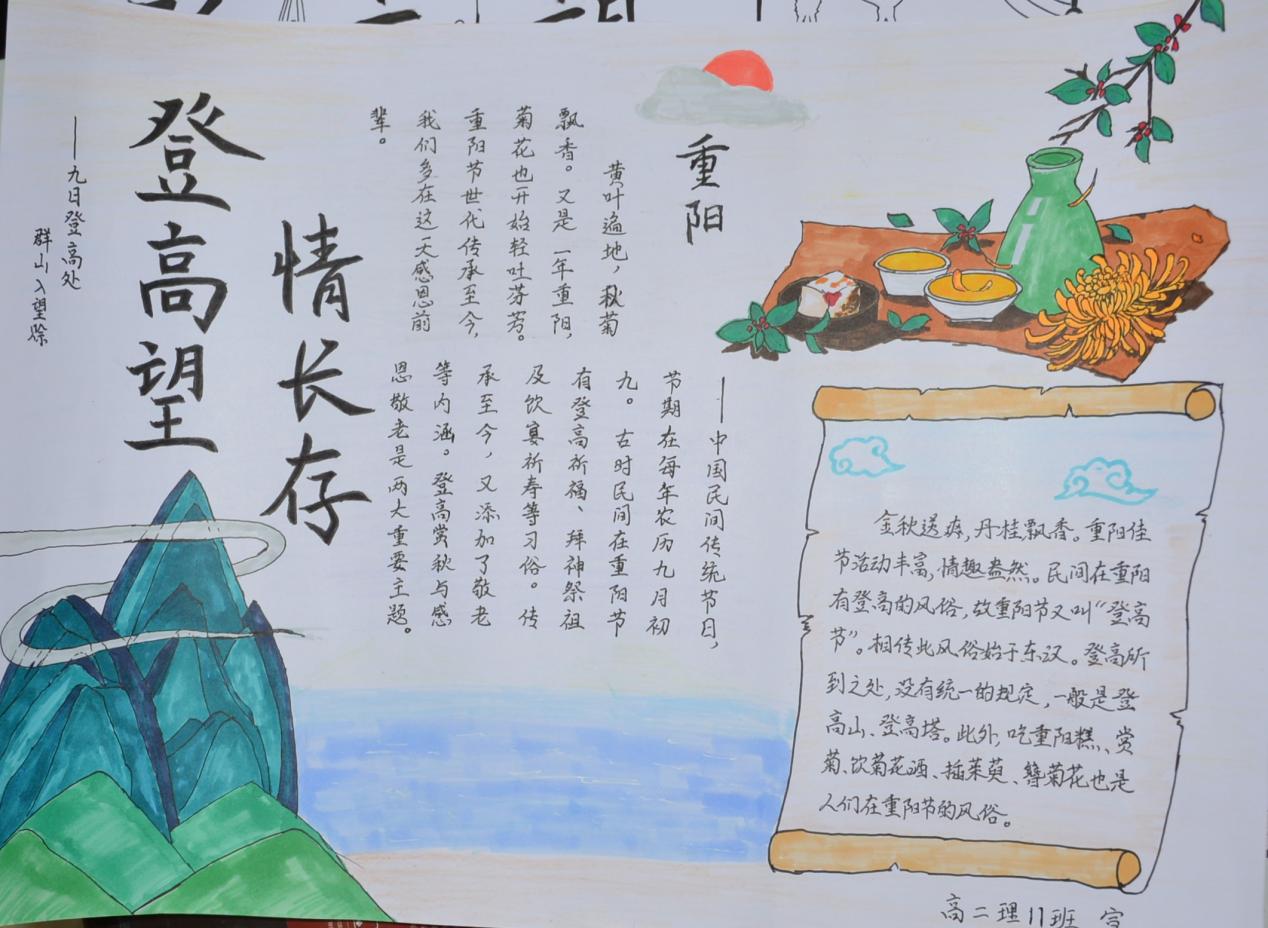 登高望
情长存
——九日登高处
群山入望赊
重阳
黄叶遍地，秋菊
飘香。又是一年重阳，
菊花也开始轻吐芬芳。
重阳节世代传承至今，
我们多在这一天感恩前
辈。
——中国民间传统节日，
节期在每年农历九月初
九。古时民间在重阳节
有登高祈福、拜神祭祖
及饮宴祈寿等习俗。传
承至今，又添加了敬老
等内涵。登高赏秋与感
恩敬老是两大重要主题。
金秋送爽，丹桂飘香。重阳佳
节活动丰富，情趣盎然。民间在重阳
有登高的风俗，故重阳节又叫“登高
节”。相传此风俗始于东汉。登高所
到之处，没有统一的规定，一般是登
高山、登高塔。此外，吃重阳糕、赏
菊、饮菊花酒、插茱萸、簪菊花也是
人们在重阳节的风俗。
高二理11班